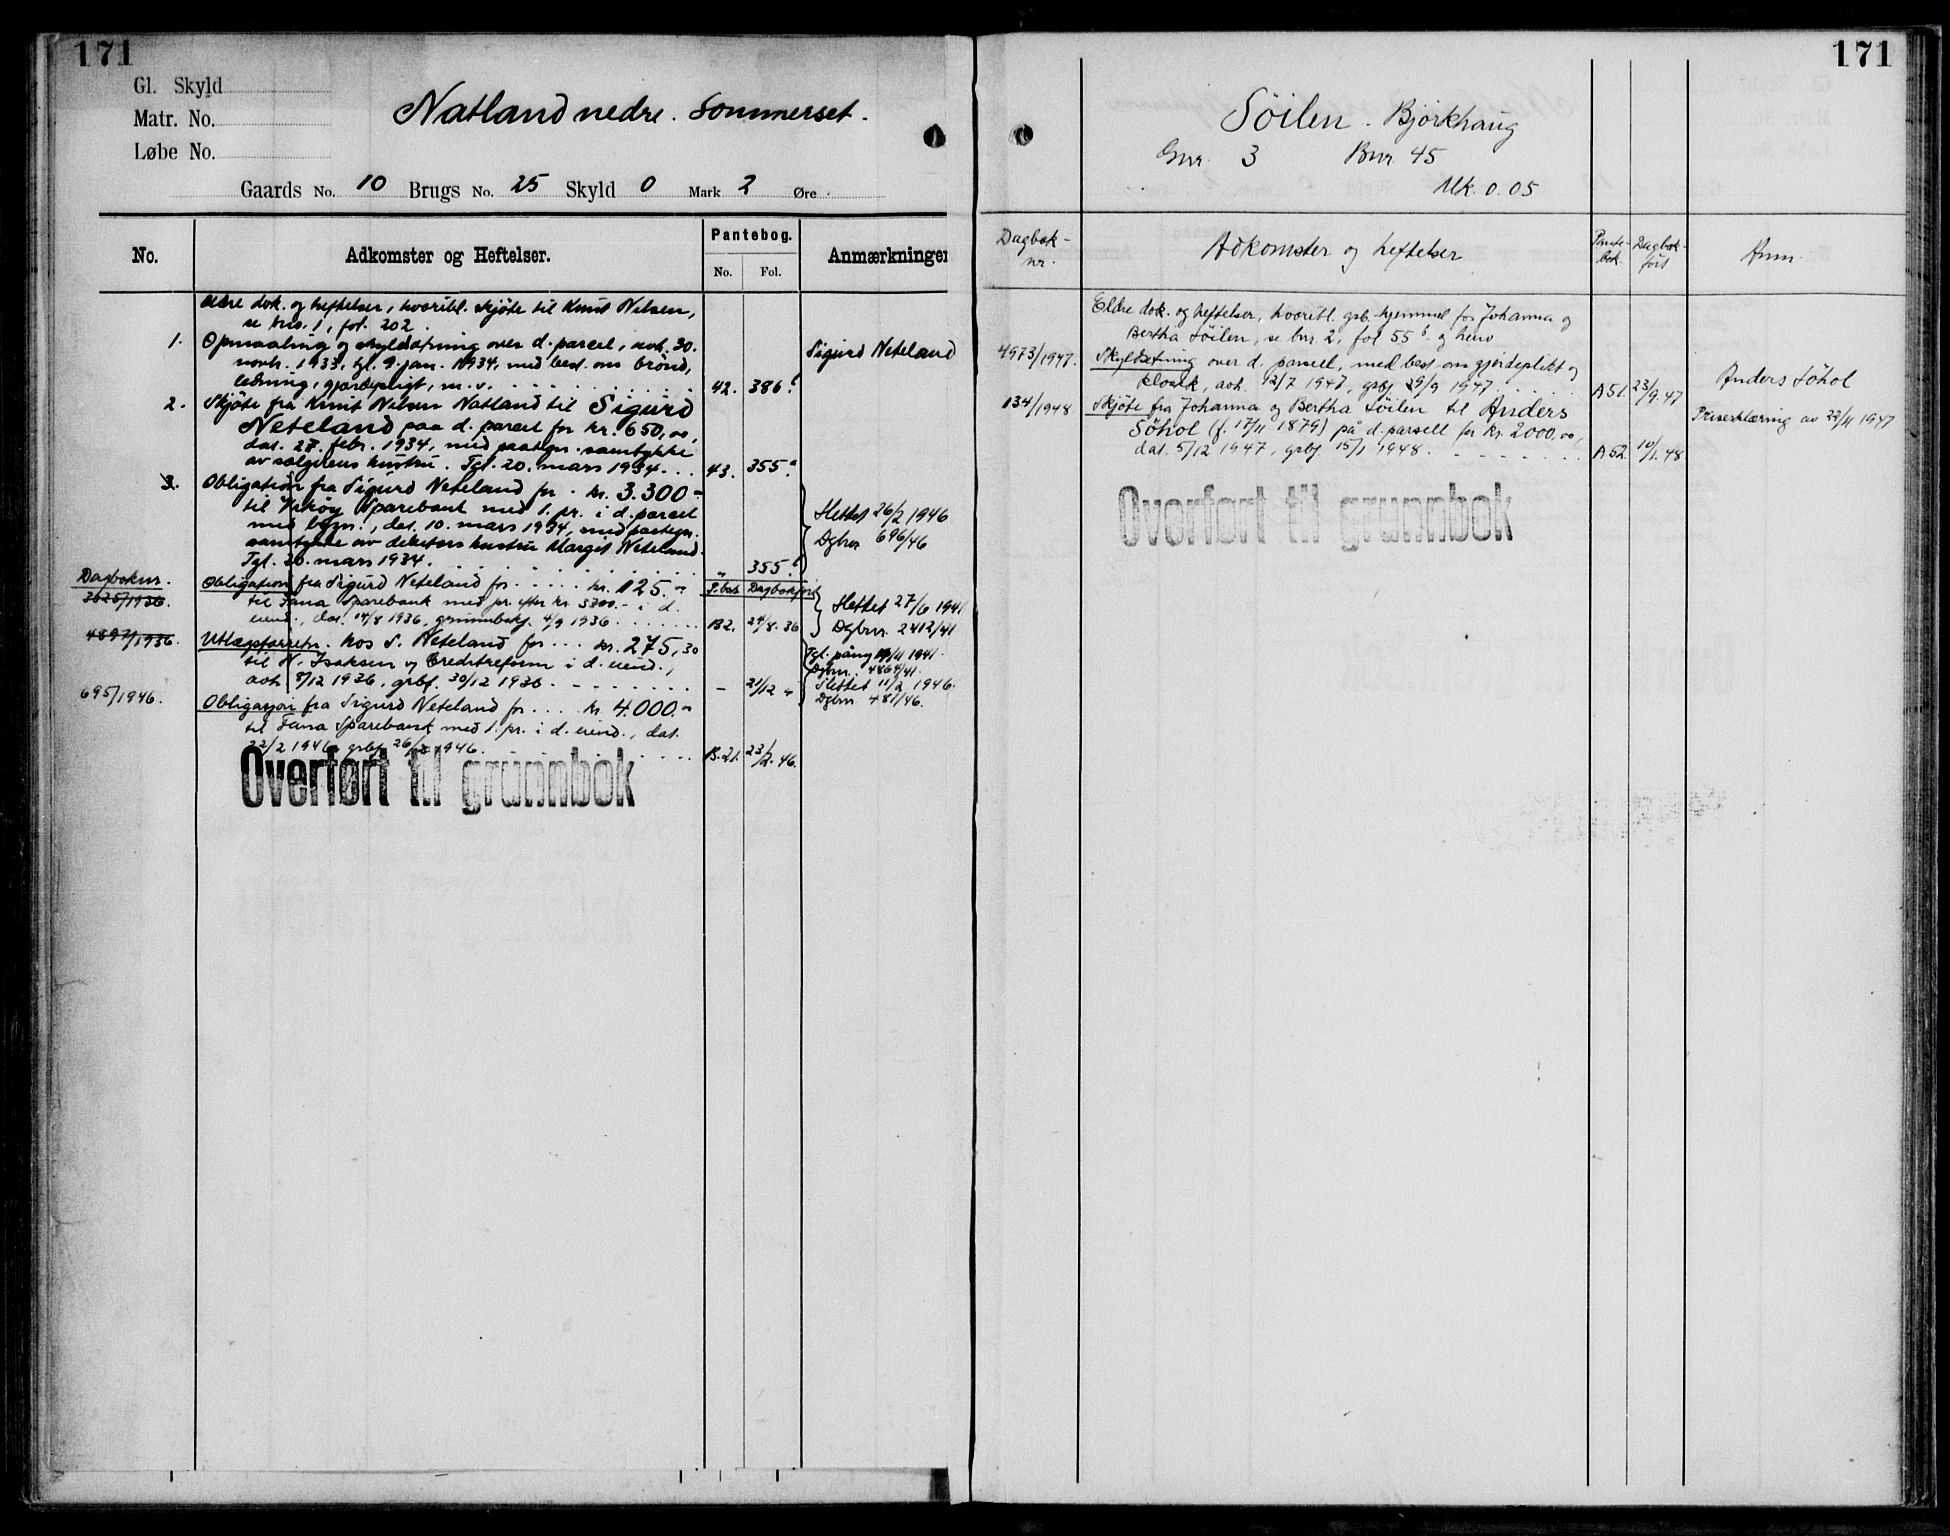 171
Gl. Skyld
Matr. No.
Løbe No.
Natland nedre. Sommerset.
Gaards No. 10 Brugs No. 25 Skyld 0 Mark 2 Øre
No. Adkomster og Heftelser. Pantebog. Anmærkninger
No. Fol.
Eldre dok. og heftelser, hvoribl. skjøte til Knut Nilsen,
se brs. 1, fol. 202.
1. Opmaaling og skyldsetning over d. parcel, avh. 30.
novbr. 1933, tgl. 9. jan. 1934, med best. om brönd,
ledning, gjærdepligt, m.v. 42. 386.b
Sigurd Neteland
2. Skjøte fra Knut Nilsen Natland til Sigurd
Neteland paa d. parcel for kr. 650,00,
dat. 27. febr. 1934, med paategn. samtykke
av sælgerens hustru. Tgl. 20. mars 1934. 43. 355.a
3. Obligation fra Sigurd Neteland for kr. 3.300.-
til Askøy Sparebank med 1. pr. i d. parcel
med bygn., dat. 10. mars 1934, med paategn.
samtykke av debitors hustru Margit Neteland.
Tgl. 20. mars 1934. " 355.b
Slettet 26/2 1946
Dgbnr 696/46
Dagboknr. P.bok Dagbokført
3625/1936. Obligation fra Sigurd Neteland for kr. 125.-
til Fana Sparebank med pr. efter kr. 3300.- i d.
eiend., dat. 14/8 1936, grunnbokf. 4/9 1936. B2. 24/8. 36
Slettet 27/6 1941
Dgbnr. 2412/41
4897/1936. Utlægsforretn. hos S. Neteland for kr. 275,30
til N. Isaksen og Creditreform i d. eiend.,
avh. 8/12 1936, grbf. 30/12 1936. - 21/12 "
Tgl. påny 19/11 1941.
Dgbnr. 4869/41.
Slettet 11/2 1946.
Dgbnr 481/46.
695/1946. Obligasjon fra Sigurd Neteland for kr. 4.000.-
til Fana Sparebank med 1. pr. i d. eiend., dat.
22/2 1946, grbf. 26/2 1946. B.21. 23/2. 46.
Overført til grunnbok
171
Söilen. Björkhaug
Gnr. 3 Bnr 45
Mk. 0.05
Dagbok-nr. Adkomster og heftelser Pante-bok. Dagbok-ført Anm.
Eldre dok. og heftelser, hvoribl. grb.-hjemmel for Johanna og
Bertha Söilen, se bnr. 2, fol 55b og henv
4973/1947. Skyldsetning over d. parsell, med best. om gjerdeplikt og
kloakk, avh. 12/7 1947, grbf 29/9 1947. A51. 23/9. 47
134/1948 Skjöte fra Johanna og Bertha Söilen til Anders
Söhol (f. 17/11 1879) på d. parsell for kr. 2000,00,
dat. 5/12 1947, grbf 15/1 1948. A52 10/1. 48
Anders Söhol
Priserklæring av 22/11 1947
Overført til grunnbok